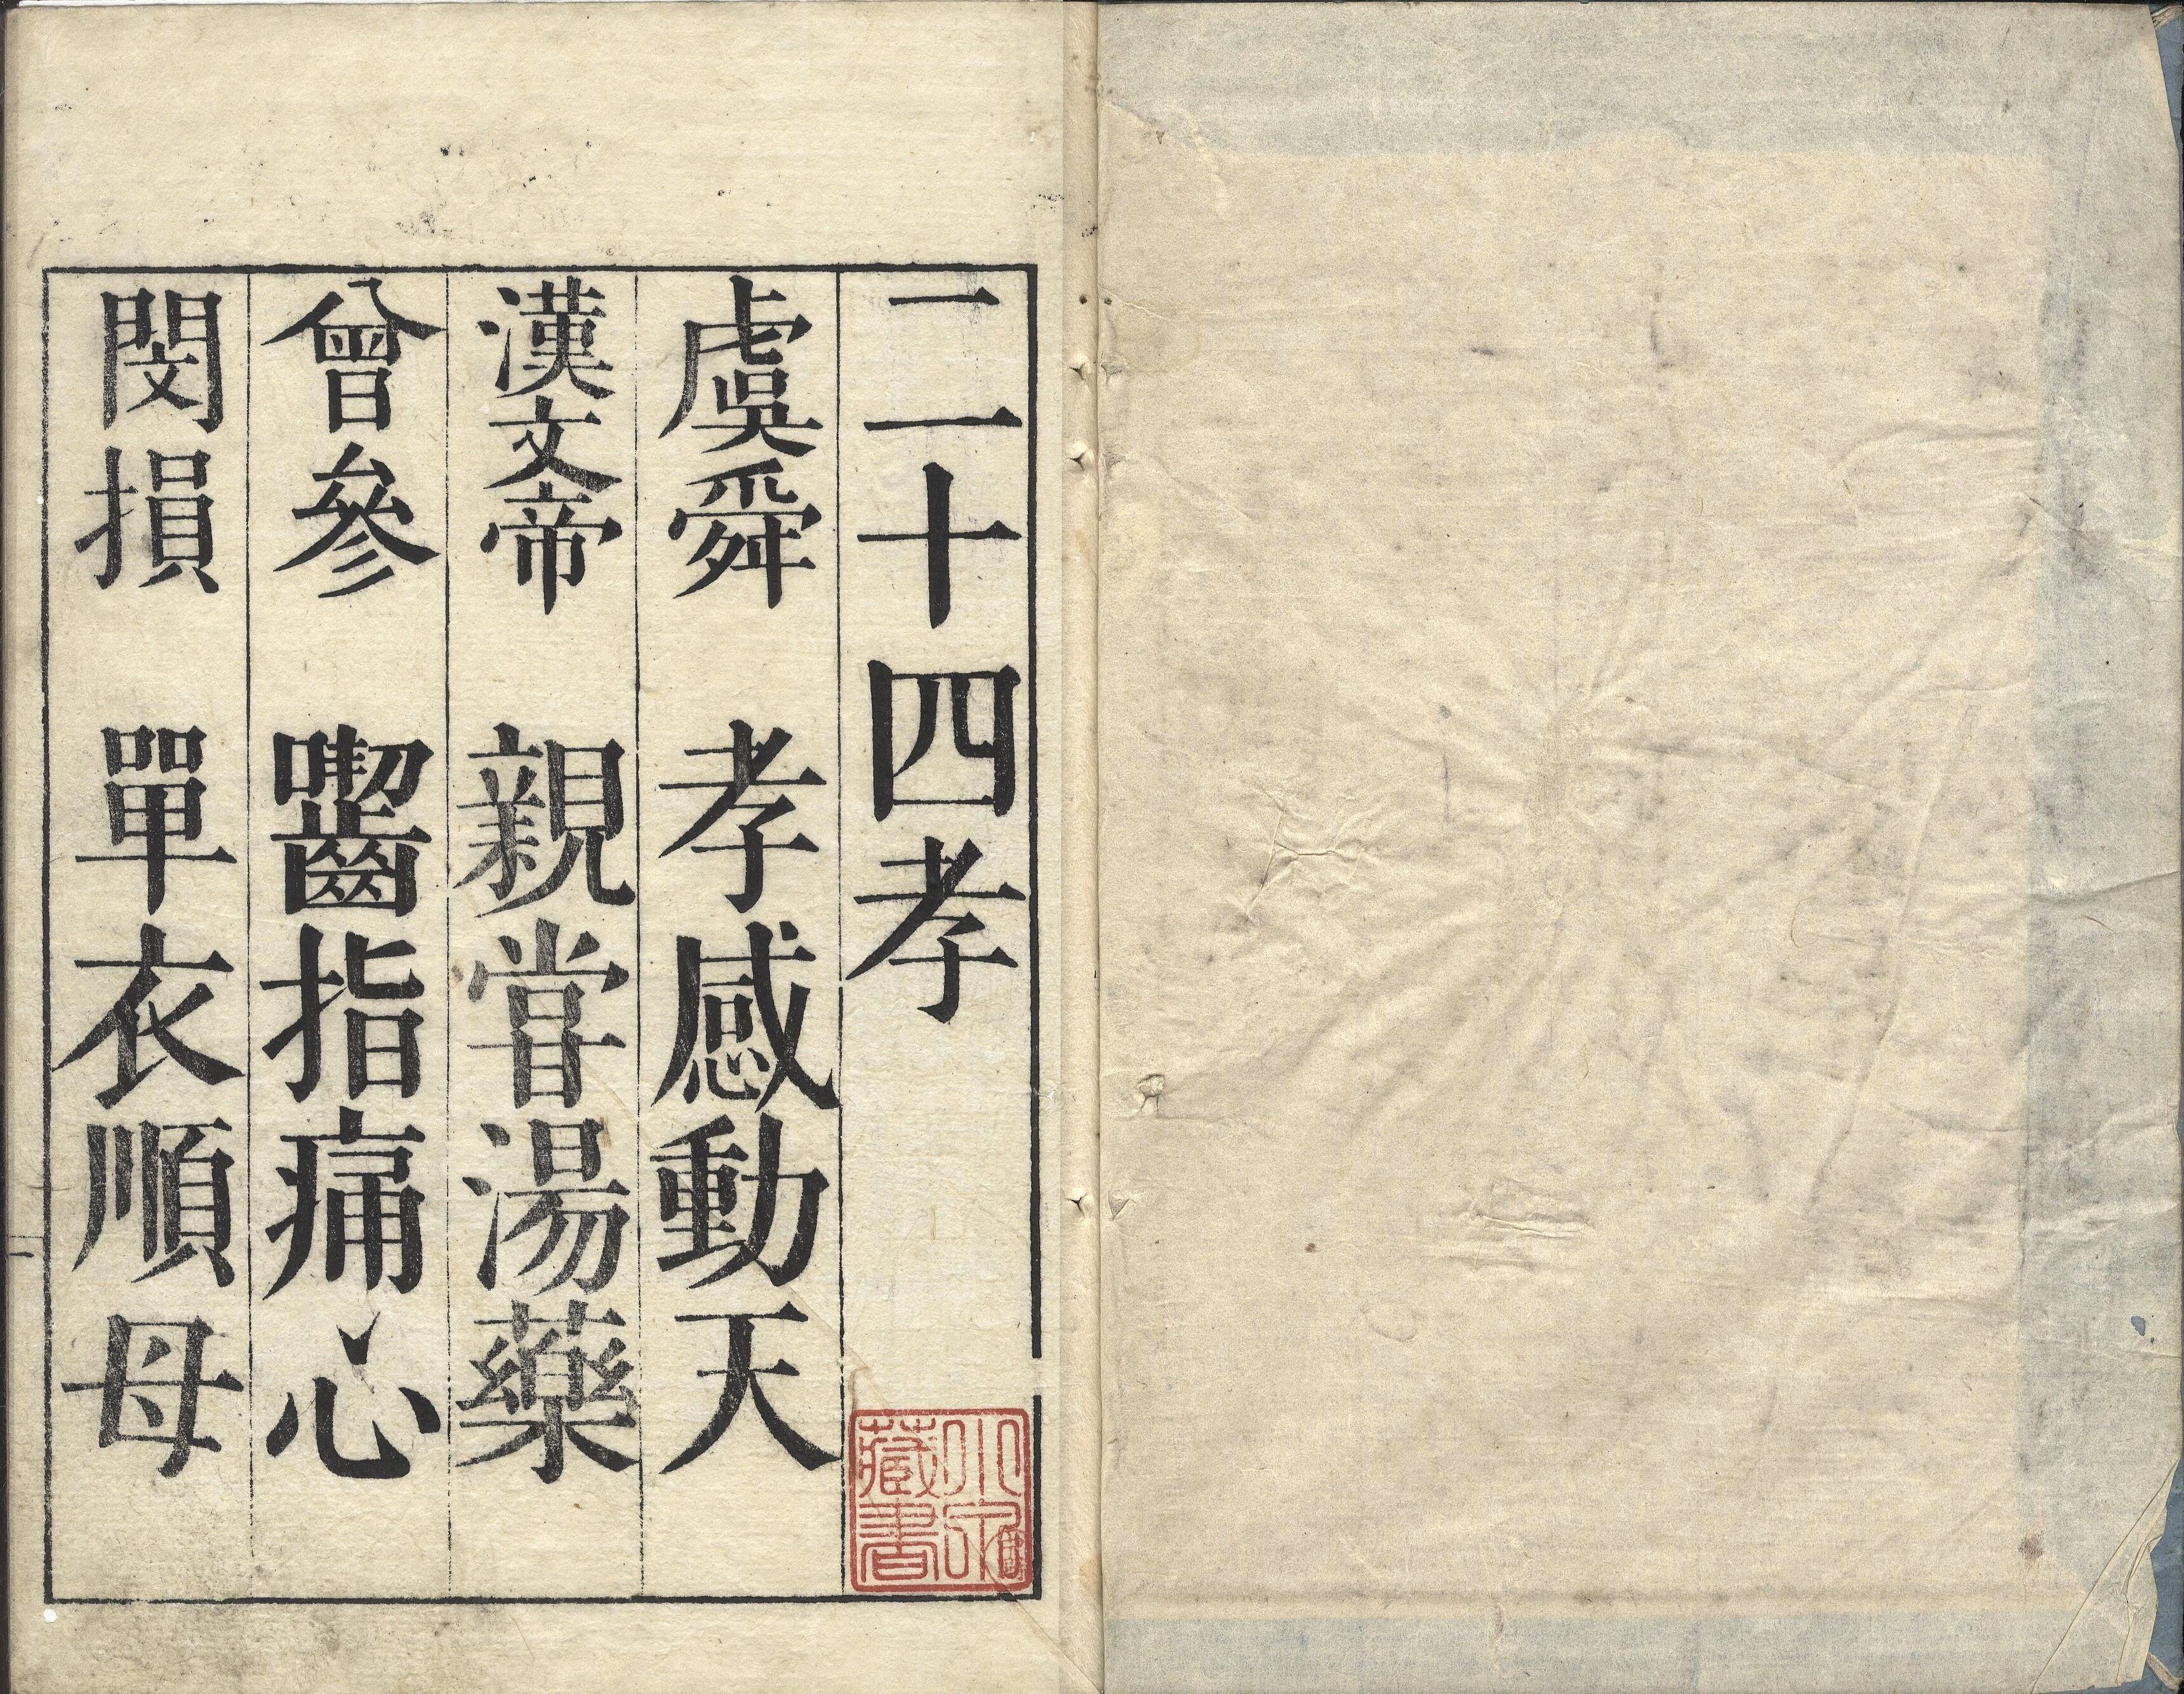 二十四孝
虞舜　孝感動天
漢文帝　親嘗湯藥
曾參　囓指痛心
閔損　單衣順母
藏書